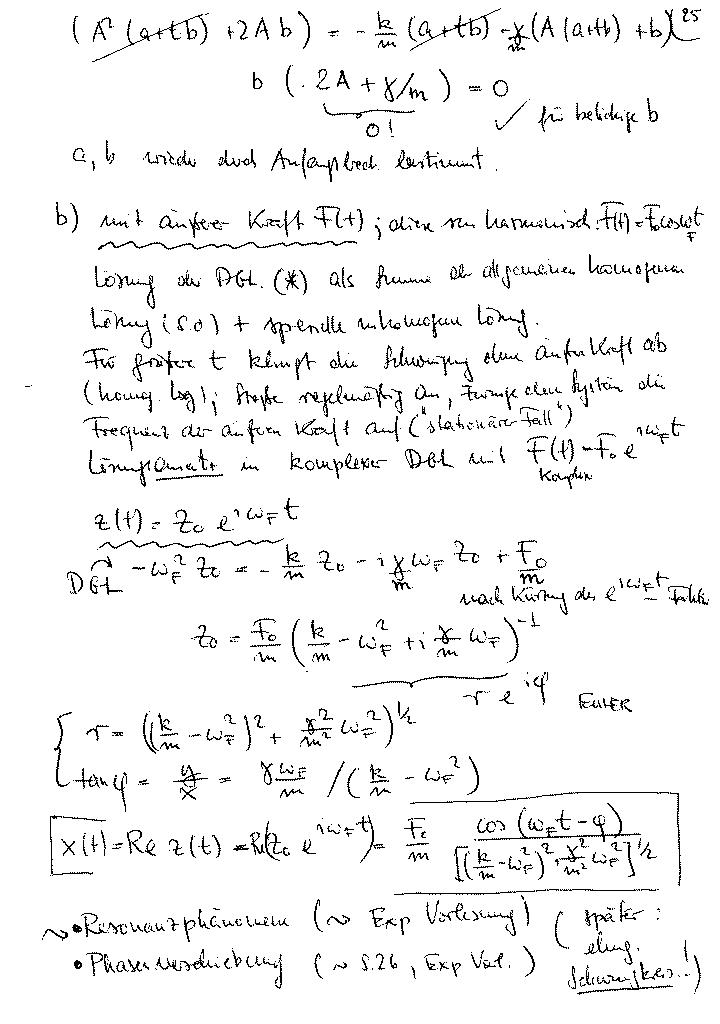 25
(A² (a+tb) + 2Ab) = - k/m (a+tb) - γ/m (A(a+tb) + b)
b (2A + γ/m) = 0
0! ✓ für beliebige b
a, b wieder durch Anfangsbed. bestimmt.
b) mit äußerer Kraft F(t); diese sei harmonisch: F(t) = F₀ cos ω_F t
Lösung der DGL. (*) als Summe der allgemeinen homogenen
Lösung (s.o) + spezielle inhomogene Lösung.
Für große t klingt die Schwingung ohne äußere Kraft ab
(homog. Lsg); Stoße regelmäßig an, zwinge dem System die
Frequenz der äußeren Kraft auf ("stationärer Fall")
Lösungsansatz in komplexer DGL mit F(t) = F₀ e^{iω_F t}
komplex
z(t) = z₀ e^{iω_F t}
DGL → -ω_F² z₀ = - k/m z₀ - i γ/m ω_F z₀ + F₀/m
nach Kürzung des e^{iω_F t} Faktors
z₀ = F₀/m (k/m - ω_F² + i γ/m ω_F)^{-1}
r e^{iφ} EULER
{ r = ((k/m - ω_F²)² + γ²/m² ω_F²)^{1/2}
tanφ = y/x = γω_F/m / (k/m - ω_F²)
x(t) = Re z(t) = Re(z₀ e^{iω_F t}) = F₀/m cos(ω_F t - φ) / [(k/m - ω_F²)² + γ²/m² ω_F²]^{1/2}
~> • Resonanzphänomen (~> Exp Vorlesung) (später:
• Phasenverschiebung (~> S.26, Exp Vorl.) elektr.
Schwingkreis!)